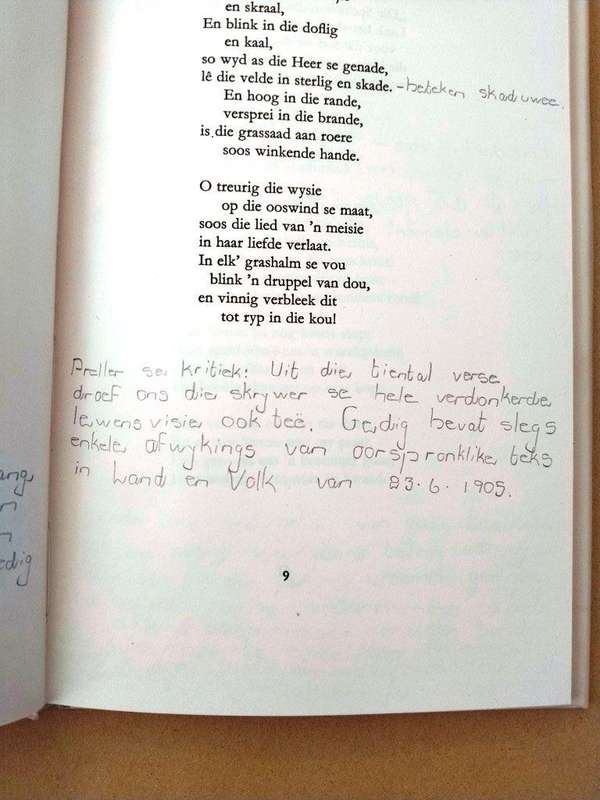 en skraal,
En blink in die doflig
en kaal,
so wyd as die Heer se genade,
lê die velde in sterlig en skade. - beteken skaduwee.
En hoog in die rande,
versprei in die brande,
is die grassaad aan roere
soos winkende hande.
O treurig die wysie
op die ooswind se maat,
soos die lied van 'n meisie
in haar liefde verlaat.
In elk' grashalm se vou
blink 'n druppel van dou,
en vinnig verbleek dit
tot ryp in die kou!
Preller se kritiek: Uit die tiental verse
droef ons die skrywer se hele verdonkerde
lewensvisie ook teë. Gedig bevat slegs
enkele afwykings van oorspronklike teks
in Land en Volk van 23.6.1905.
9
ang
n
n
edig